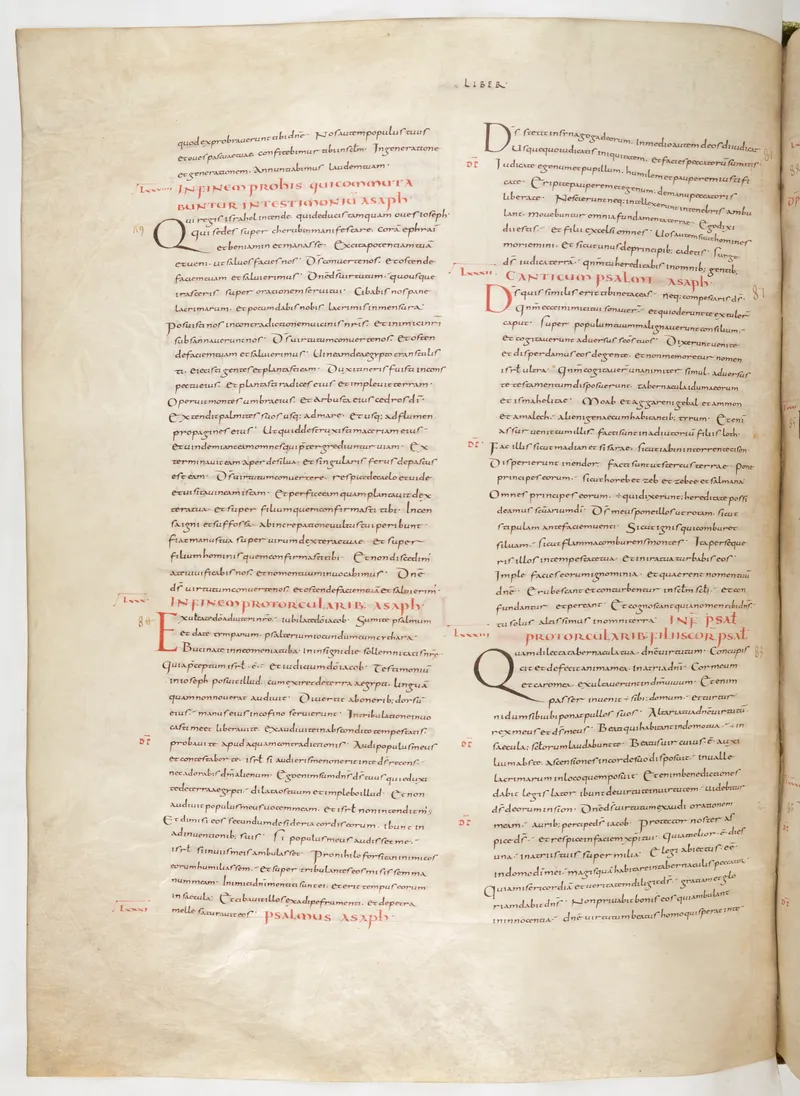 LIBER
quod exprobraverunt tibi dnē Nos autem populus tuus
et oves pascuae tuae confitebimur tibi In generatione
et generationem Annuntiabimus laudem tuam
IN FINEM PRO HIS QUI COMMUTA
BUNTUR IN TESTIMONIŪ ASAPH
Qui regis israhel intende qui deducis tamquam oves ioseph
qui sedes super cherubin manifestare corā ephrai
et beniamin et manasse Excita potentiam tuā
et veni ut salvos facies nos Dš converte nos et ostende
faciem tuam et salvi erimus Dnē dš virtutum quousque
irasceris super orationem servi tui Cibabis nos pane
lacrimarum et potum dabis nobis lacrimis in mensura
Posuisti nos in contradictionem vicinis nris et inimici nri
subsannaverunt nos Dš virtutum converte nos et osten
de faciem tuam et salvi erimus Vineam de aegypto transtulis
ti eiecisti gentes et plantasti eam Dux itineris fuisti in cons
pectu eius et plantasti radices eius et implevit terram
Operuit montes umbra eius et arbusta eius cedros dī
Extendit palmites suos usq; ad mare et usq; ad flumen
propagines eius Ut quid destruxisti maceriam eius
et vindemiant eam omnes qui pretergrediuntur viam Ex
terminavit eam aper de silva et singularis ferus depastus
est eam Dš virtutum convertere respice de caelo et vide
et visita vineam istam Et perfice eam quam plantavit dex
tera tua et super filium quem confirmasti tibi Incen
sa igni et suffossa ab increpatione vultus tui peribunt
Fiat manus tua super virum dexterae tuae et super
filium hominis quem confirmasti tibi Et non discedim
a te vivificabis nos et nomen tuum invocabimus Dnē
dš virtutum converte nos et ostende faciem tuā et salvi erim
IN FINEM PRO TORCULARIB; ASAPH
Exultate dō adiutori nro iubilate dō iacob Sumite psalmum
et date tympanum psalterium iucundum cum cithara
Bucinate in neomenia tuba in insigni die sollemnitatis nrae
Quia preceptum isrl ē et iudicium dō iacob Testimoniū
in ioseph posuit illud cum exiret de terra aegypti linguā
quam non noverat audivit Divertit ab onerib; dorsū
eius manus eius in cofino servierunt In tribulatione invo
casti me et liberavi te Exaudivi te in abscondito tempestatis
probavi te apud aquam contradictionis Audi populus meus
et contestabor te isrl si audieris me non erit in te dš recens
nec adorabis dm alienum Ego enim sum dns dš tuus qui eduxi
te de terra aegypti dilata os tuum et implebo illud Et non
audivit populus meus vocem meam et isrl non intendit mi
Et dimisi eos secundum desideria cordis eorum ibunt in
adinventionib; suis Si populus meus audisset me
isrl si in viis meis ambulasset Pro nihilo forsitan inimicos
eorum humiliassem et super tribulantes eos misissem ma
num meam Inimici dni mentiti sunt ei et erit tempus eorum
in saecula Et cibavit illos ex adipe frumenti et de petra
melle saturavit eos PSALMUS ASAPH
Dš stetit in sinagoga deorum in medio autem deos diiudicat
Usquequo iudicatis iniquitatem et facies peccatorū sumitis
Iudicate egenum et pupillum humilem et pauperem iustifi
cate Eripite pauperem et egenum de manu peccatoris
liberate Nescierunt neq; intellexerunt in tenebris ambu
lant movebuntur omnia fundamenta terrae Ego dixi
dii estis et filii excelsi omnes Vos autem sicut homines
moriemini et sicut unus de principib; cadetis Surge
dš iudica terrā qnm tu hereditabis in omnib; gentib;
CANTICUM PSALMI ASAPH
Dš quis similis erit tibi ne taceas neq; compescaris dš
Qnm ecce inimici tui sonaver et qui oderunt te extuler
caput Super populum tuum malignaverunt consilium
et cogitaverunt adversus scos tuos Dixerunt venite
et disperdamus eos de gente et non memoretur nomen
isrl ultra Qnm cogitaver unanimiter simul adversus
te testamentum disposuerunt tabernacula idumeorum
et ismahelitae Moab et aggareni gebal et ammon
et amalech alienigenae cum habitantib; tyrum Etenī
assur venit cum illis facti sunt in adiutoriū filiis loth
Fac illis sicut madian et sisarae sicut iabin in torrente cison
Disperierunt in endor facti sunt ut stercus terrae Pone
principes eorum sicut horeb et zeb et zebee et salmana
Omnes principes eorum qui dixerunt hereditate possi
deamus scuarium dī Dš meus pone illos ut rotam sicut
stipulam ante faciem venti Sicut ignis qui comburet
silvam sicut flamma comburens montes Ita perseque
ris illos in tempestate tua et in ira tua turbabis eos
Imple facies eorum ignominia et quaerent nomen tuū
dnē Erubescant et conturbentur in sclm scli et con
fundantur et pereant Et cognoscant quia nomen tibi dns
tu solus altissimus in omni terra INF PSAL
PRO TORCULARIB; FILIIS COR PSAL
Quam dilecta tabernacula tua dnē virtutum Concupis
cit et deficit anima mea in atria dni Cor meum
et caro mea exultaverunt in dm vivum Etenim
passer invenit sibi domum et turtur
nidum sibi ubi ponat pullos suos Altaria tua dnē virtutū
rex meus et dš meus Beati qui habitant in domo tua in
saecula sclorum laudabunt te Beatus vir cuius ē auxi
lium abs te ascensiones in corde suo disposuit in valle
lacrimarum in loco quem posuit Etenim benedictiones
dabit legis lator ibunt de virtute in virtutem videbitur
dš deorum in sion Dnē dš virtutum exaudi orationem
meam aurib; percipe dš iacob Protector noster as
pice dš et respice in faciem xpi tui Quia melior ē dies
una in atriis tuis super milia Elegi abiectus eē
in domo dī mei magis quā habitare in tabernaculis peccatorū
Quia misericordiā et veritatem diligit dš gratiam et glo
riam dabit dns Non privabit bonis eos qui ambulant
in innocentia dnē virtutum beatus homo qui sperat in te